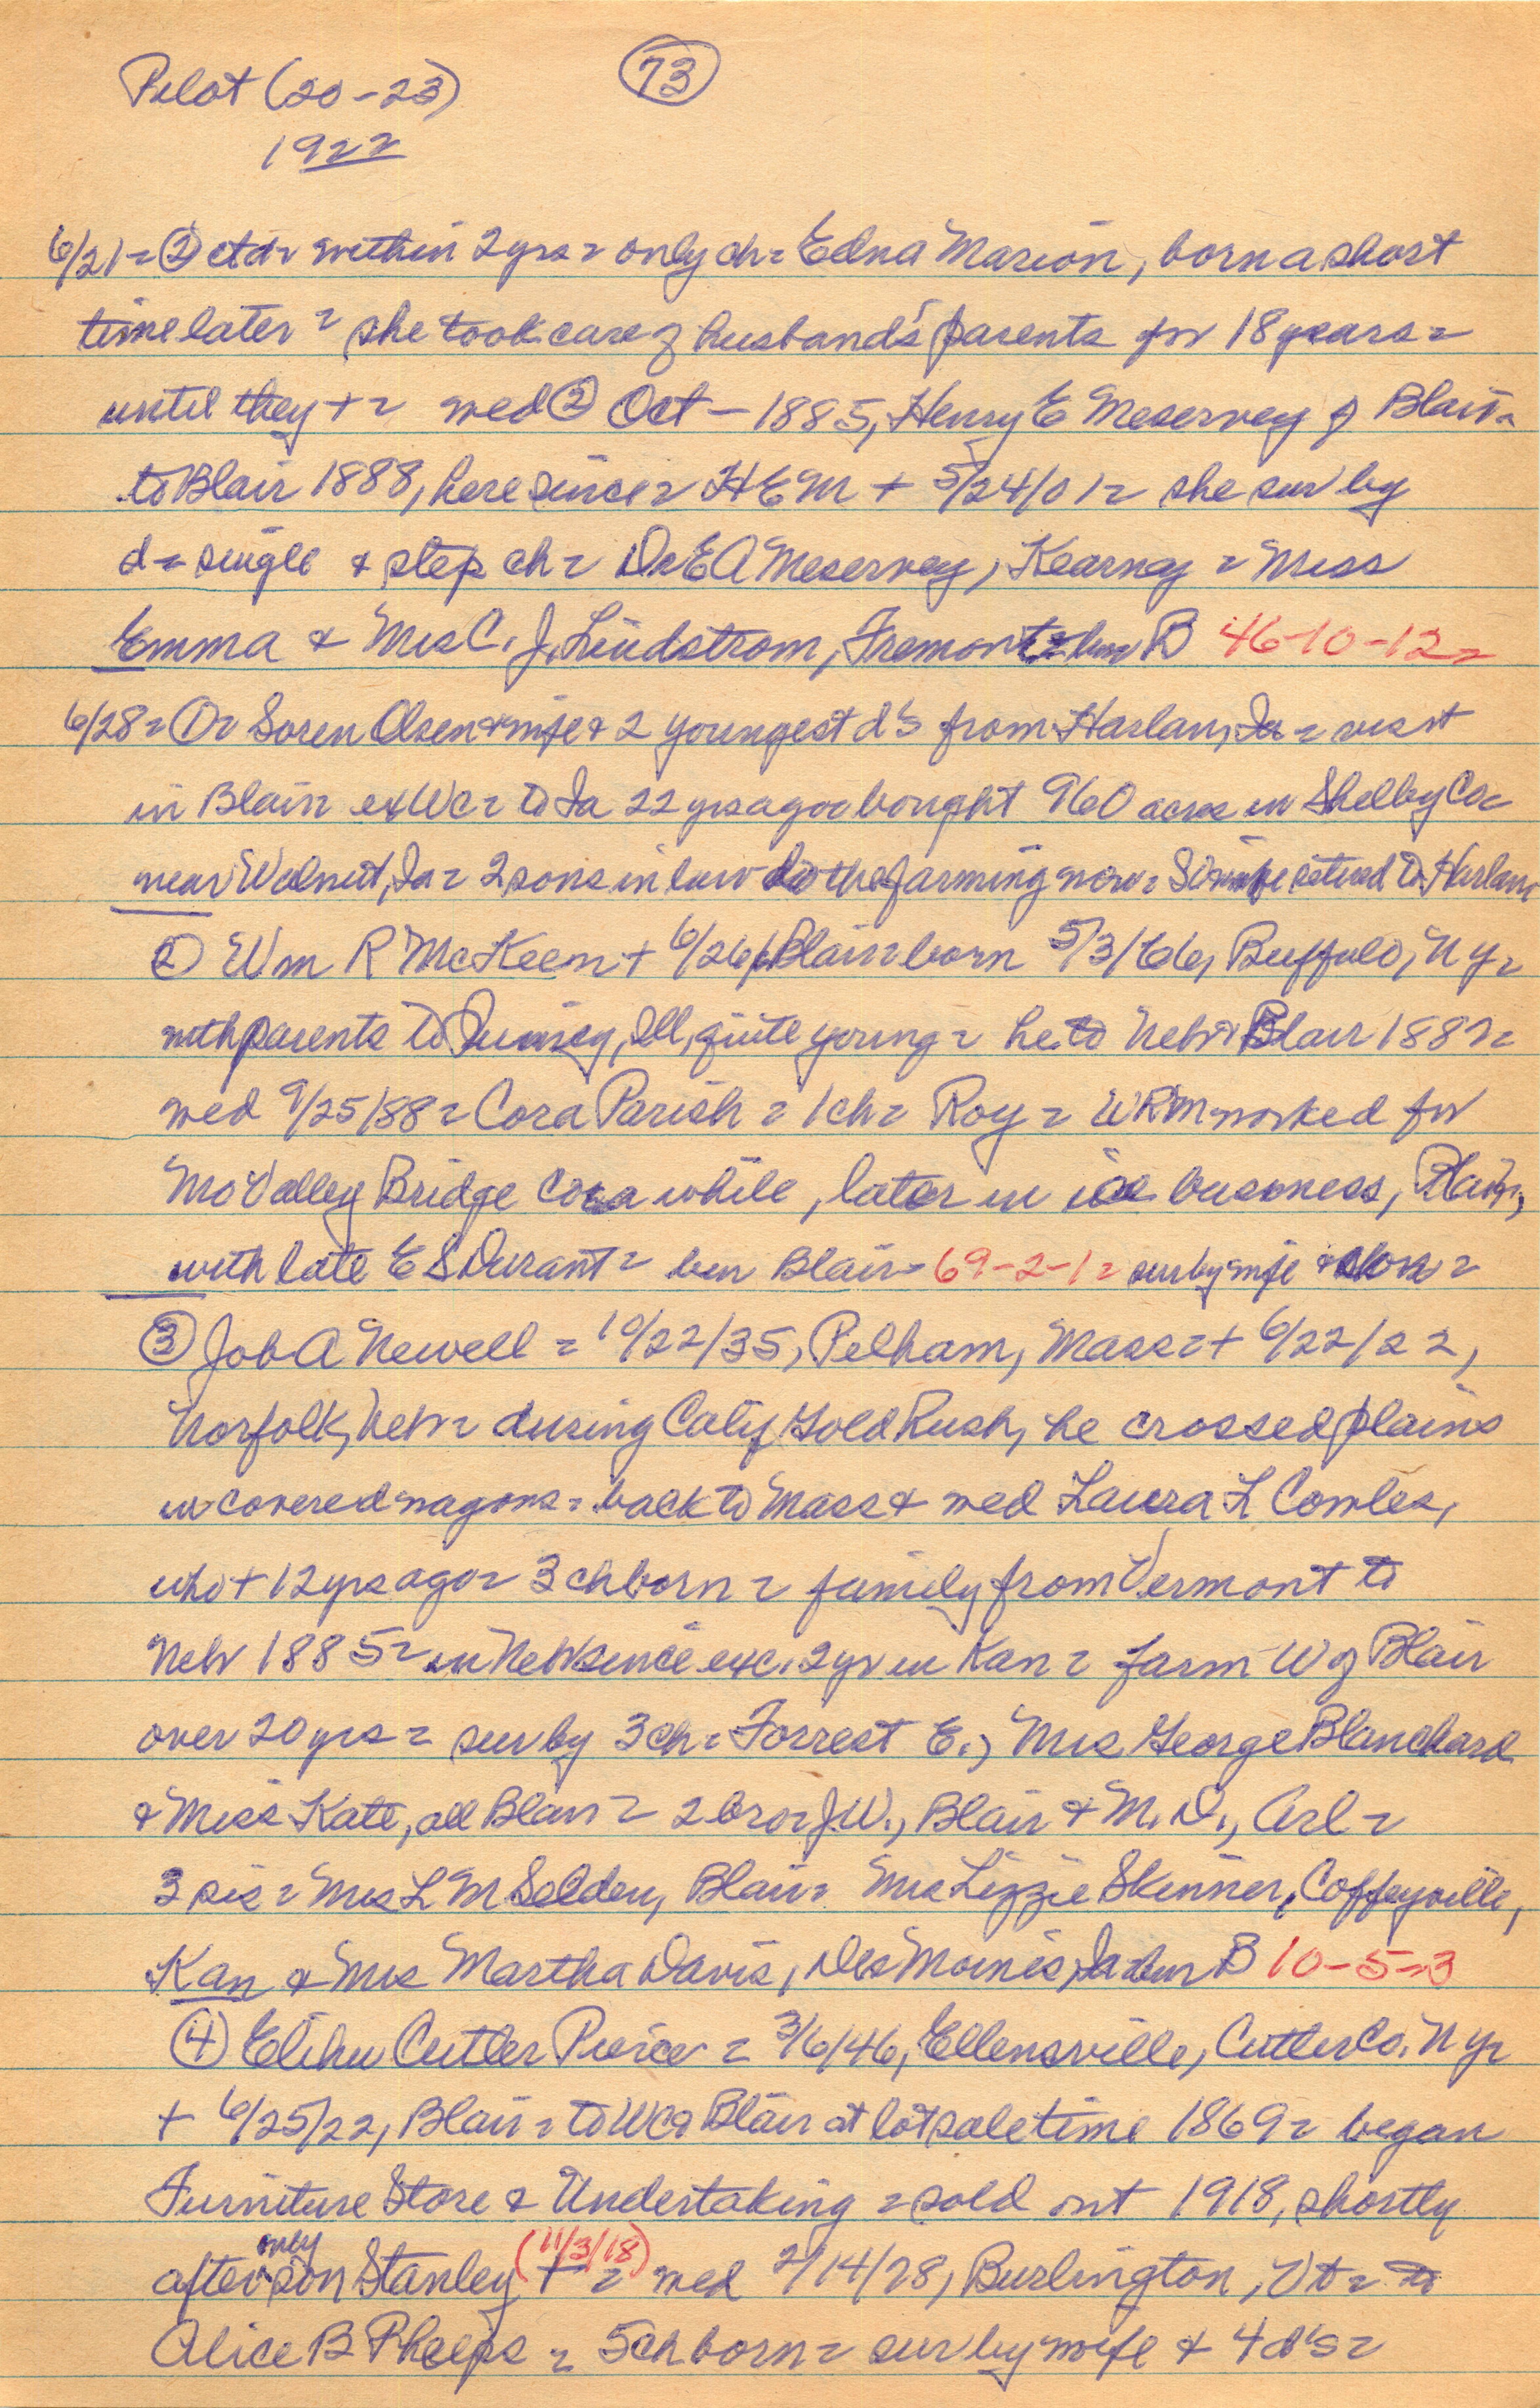 Pilot (20-23)
73
1922
6/21 = ② ctd = within 2 yrs = only ch = Edna Marion, born a short
time later = she took care of husband's parents for 18 years =
until they + = med ② Oct - 1885, Henry E Meservey of Blair =
to Blair 1888, here since = H E M + 5/24/01 = she sur by
d = single & step ch = Dr E A Meservey, Kearney = Miss
Emma & Mrs C. J. Lindstrom, Fremont = bur B 46-10-12 =
6/28 = ① = Soren Olsen & wife & 2 youngest d's from Harlan, Ia = visit
in Blair = ex WC = to Ia 22 yrs ago = bought 960 acres in Shelby Co =
near Walnut, Ia = 2 sons in law do the farming now = SO & wife retired to Harlan
② Wm R McKeen + 6/26, Blair = born 5/3/66, Buffalo, N Y =
with parents to Quincy, Ill, quite young = he to Nebr & Blair 1882 =
med 9/25/88 = Cora Parish = 1 ch = Roy = WRM worked for
Mo Valley Bridge Co a while, later in ice business, Blair,
with late E S Durant = bur Blair = 69-2-1 = sur by wife & son =
③ Job A Newell = 10/22/35, Pelham, Mass = + 6/22/22,
Norfolk, Nebr = during Calif Gold Rush, he crossed plains
in covered wagons = back to Mass & med Laura L Cowles,
who + 12 yrs ago = 3 ch born = family from Vermont to
Nebr 1885 = in Nebr since exc. 2 yr in Kan = farm W of Blair
over 20 yrs = sur by 3 ch = Forrest E., Mrs George Blanchard
& Miss Kate, all Blair = 2 bro = J.W., Blair & M. D., Arl =
3 sis = Mrs L M Selden, Blair = Mrs Lizzie Skinner, Coffeyville,
Kan & Mrs Martha Davis, Des Moines, Ia = bur B 10-5-3
④ Elihu Cutler Pierce = 3/6/46, Ellensville, Cutler Co. N Y =
+ 6/25/22, Blair = to WC & Blair at lot sale time 1869 = began
Furniture Store & Undertaking = sold out 1918, shortly
after only son Stanley + (11/3/18) = med 2/14/78, Burlington, Vt = to
Alice B Phelps = 5 ch born = sur by wife & 4 d's =